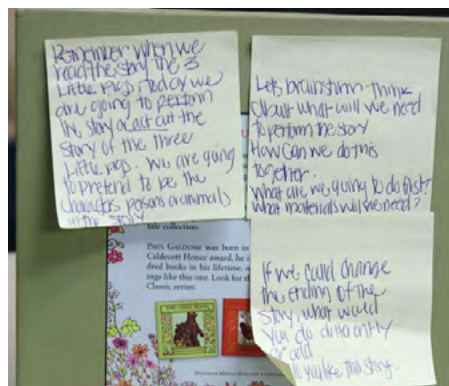 Remember when we
read the story the 3
Little Pigs. Today we
are going to perform
the story or act out the
story of the three
Little pigs. We are going
to pretend to be the
characters persons or animals
in the story
Lets brainstorm-think
about what will we need
to perform the story
How can we do this
together.
What are we going to do first?
What materials will we need?
If we could change
the ending of the
story, what would
you do differently
or add
you like this story.
tale collection.
PAUL GALDONE was born in
Caldecott Honor award, he i
dred books in his lifetime,
ings like this one. Look for t
Classic series: